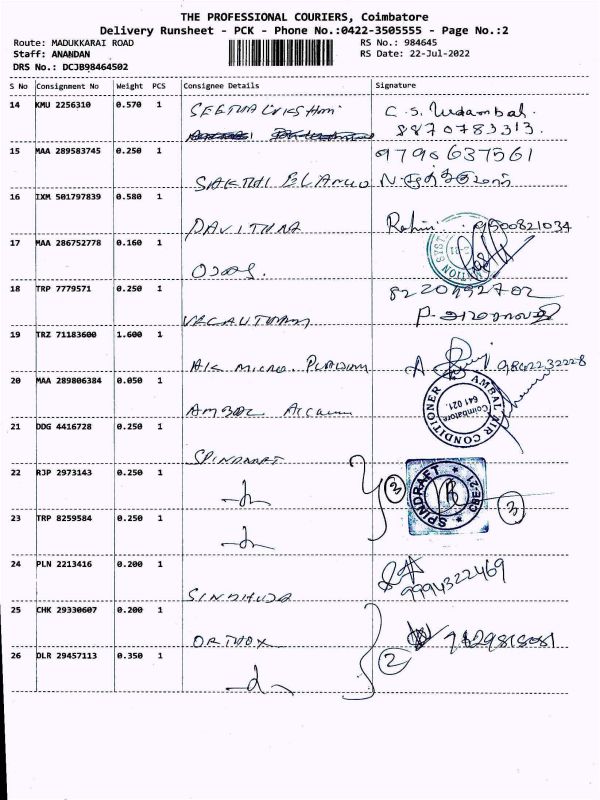 THE PROFESSIONAL COURIERS, Coimbatore
Delivery Runsheet - PCK - Phone No.:0422-3505555 - Page No.:2
Route: MADUKKARAI ROAD
RS No.: 984645
Staff: ANANDAN
RS Date: 22-Jul-2022
DRS No.: DCJB98464502
S No Consignment No Weight PCS Consignee Details Signature
14 KMU 2256310 0.570 1
8870783313.
15 MAA 289583745 0.250 1
9790637561
SAKTHI
16 IXM 501797839 0.580 1
PAVITHRA 9500821034
17 MAA 286752778 0.160 1
18 TRP 7779571 0.250 1
19 TRZ 71183600 1.600 1
AIK MICRO
20 MAA 289806384 0.050 1
AMBAL AIR CONDITIONER
Coimbatore
641 021.
21 DDG 4416728 0.250 1
SPINDRAFT
22 RJP 2973143 0.250 1
3
SPINDRAFT CBE-21
3
23 TRP 8259584 0.250 1
24 PLN 2213416 0.200 1
SINDHUJA 9994322469
25 CHK 29330607 0.200 1
ORTHOX
2
26 DLR 29457113 0.350 1